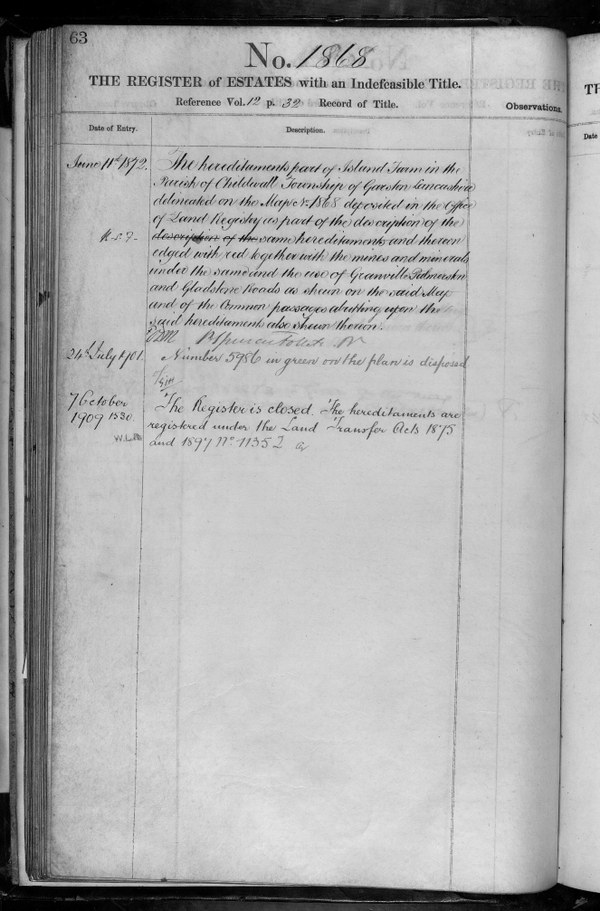 63
No. 1868
THE REGISTER of ESTATES with an Indefeasible Title.
Reference Vol. 12 p. 32 Record of Title.
Observations.
Date of Entry.
Description.
June 11th 1872.
The hereditaments part of Island Farm in the
Parish of Childwall Township of Garston Lancashire
delineated on the Map No 1868 deposited in the Office
of Land Registry as part of the description of the
description of the same hereditaments and thereon
edged with red together with the mines and minerals
under the same and the use of Granville Palmerston
and Gladstone Roads as shewn on the said Map
and of the Common passages abutting upon the
said hereditaments also shewn thereon.
24th July 1901.
Number 5986 in green on the plan is disposed
of
7 October
1909 1530
The Register is closed. The hereditaments are
registered under the Land Transfer Acts 1875
and 1897 No. 11352
TH
Date